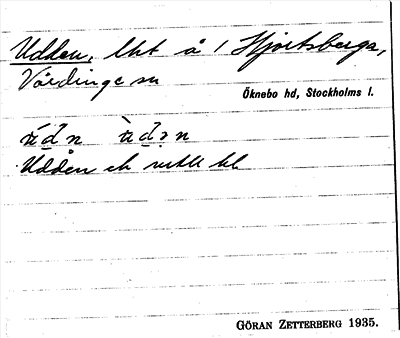 Udden, lht å 1 Hjortsberga,
Vårdinge sn
Öknebo hd, Stockholms l.
Udden
GÖRAN ZETTERBERG 1935.